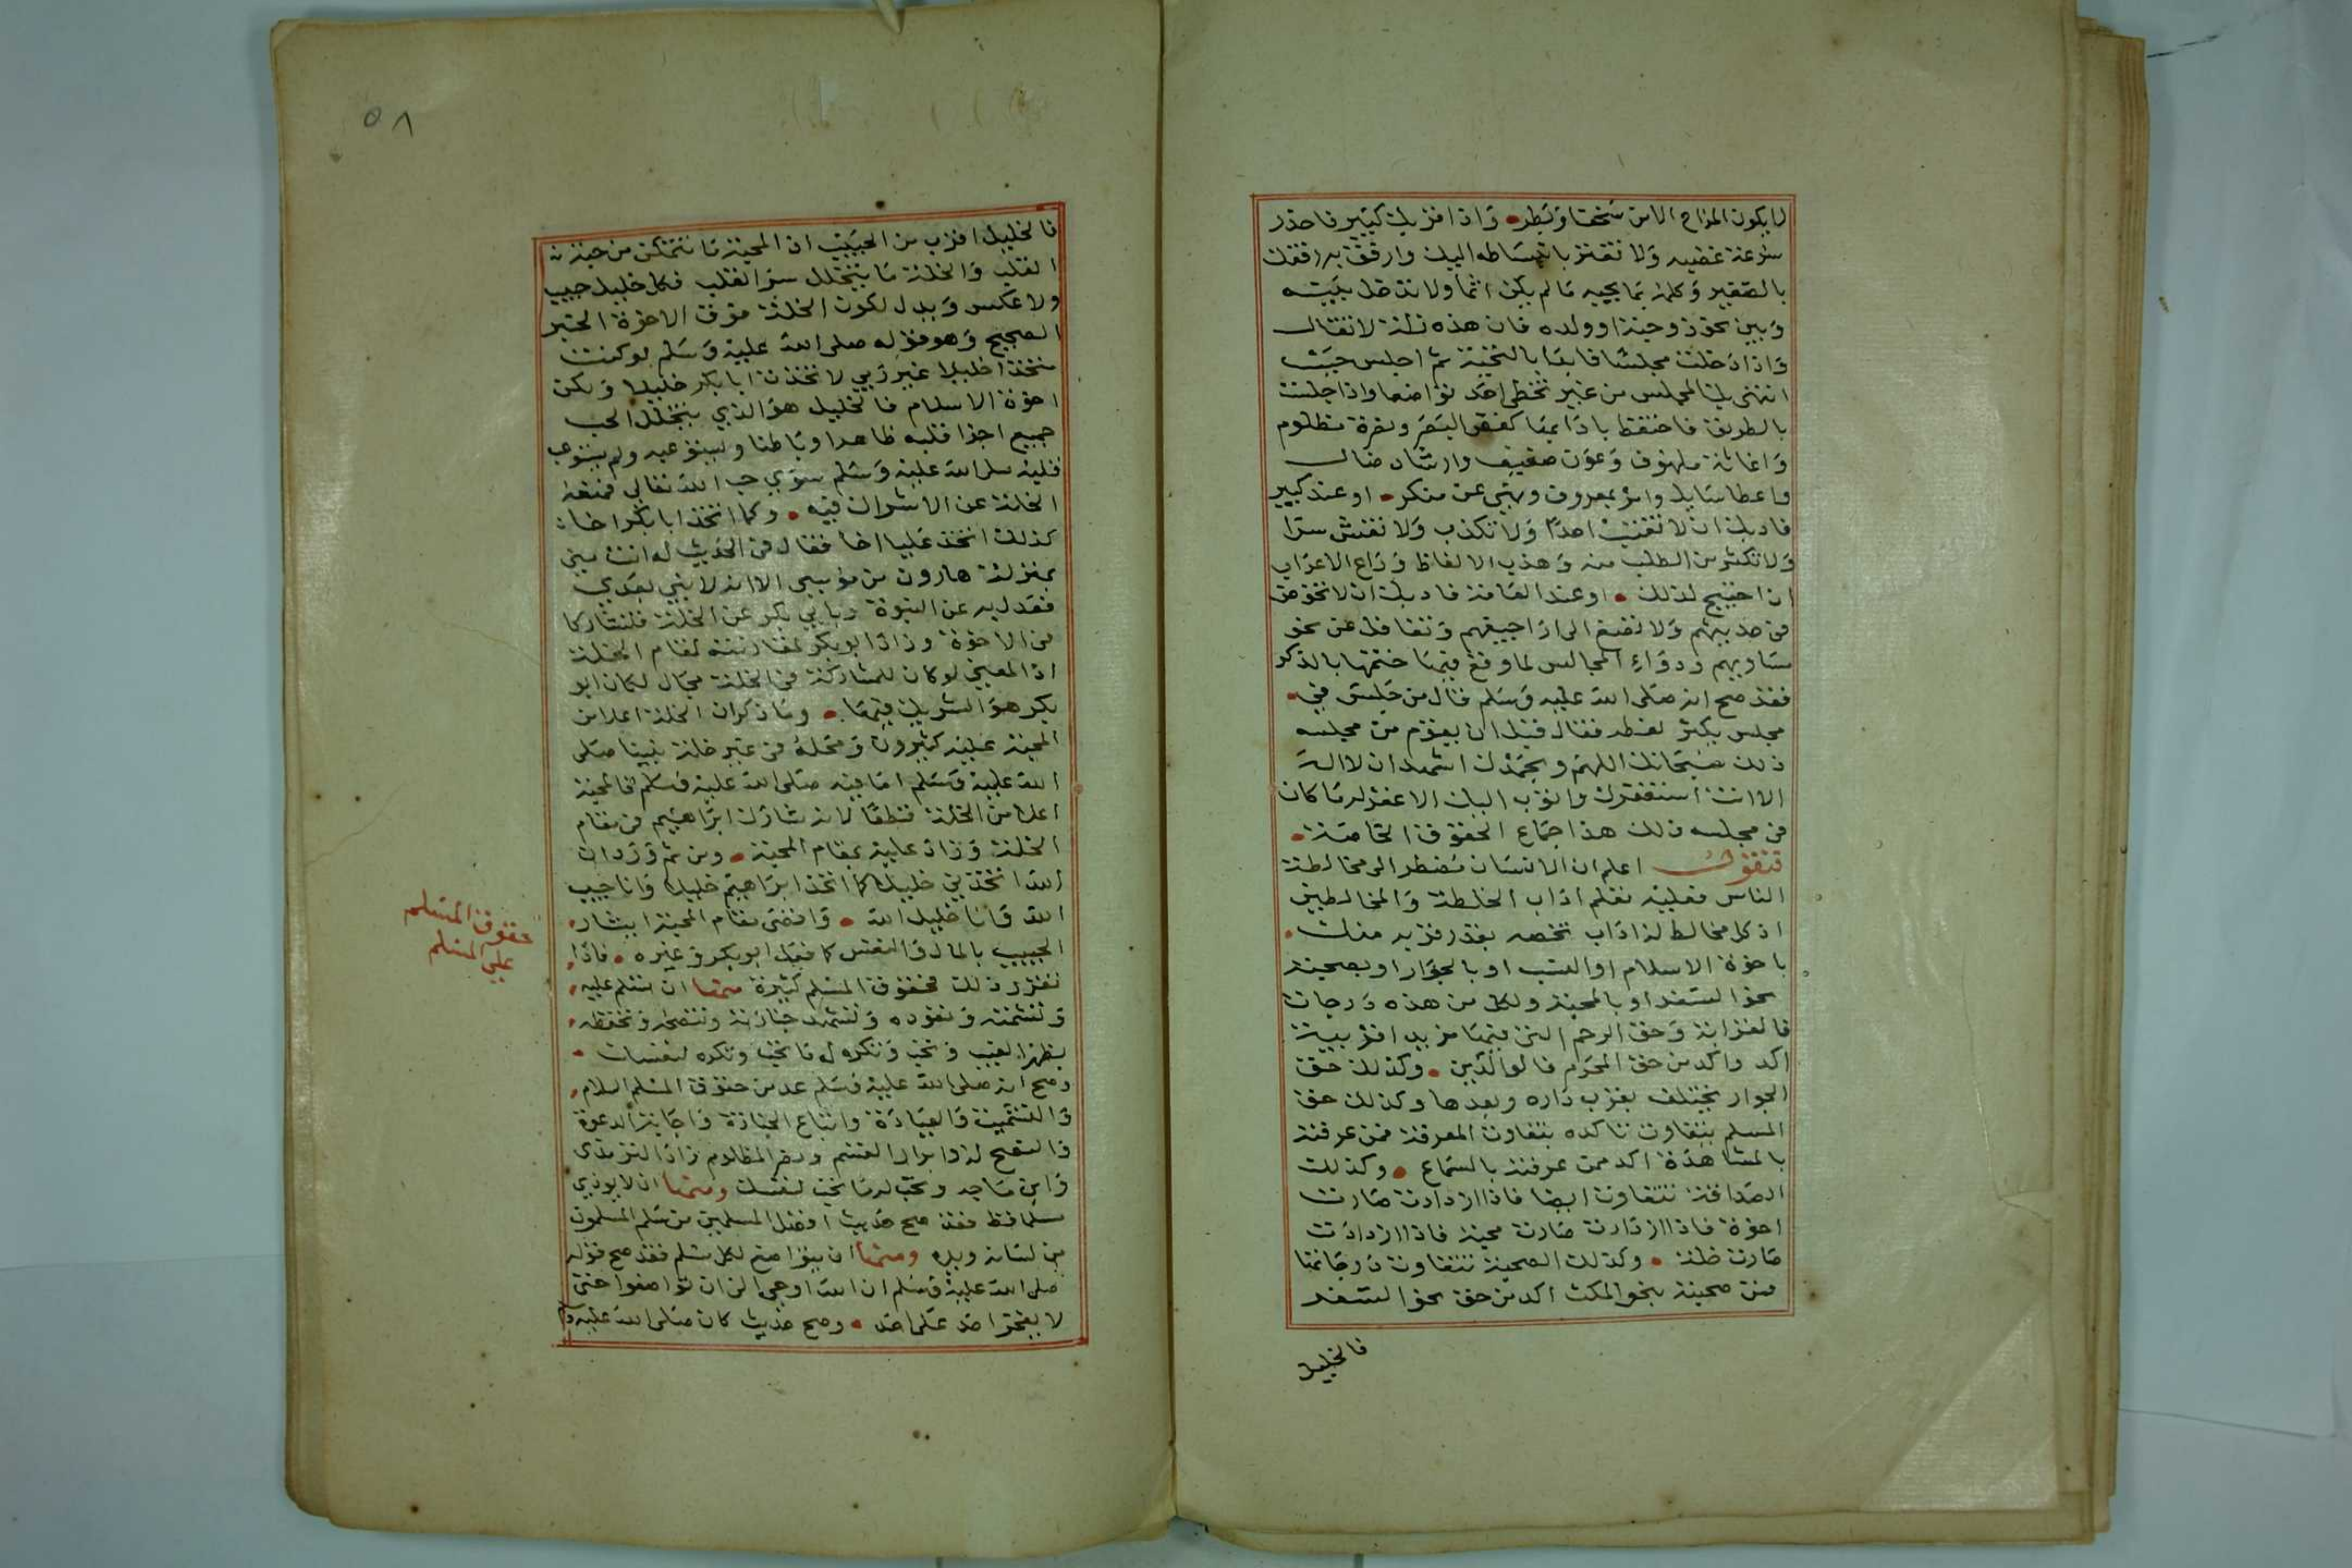 لا يكون المزاح الا من سخف او بطر واذا قربك كبير فاحذر
سرعة غضبه ولا تغتر بانبساطه اليك وارفق به رفقك
بالصغير وكلمه بما يحبه ما لم يكن اثما ولا تدخل بيته
وبين نحو زوجته او ولده فان هذه زلة لا تقال
واذا دخلت مجلسا فابدا بالتحية ثم اجلس حيث
انتهى بك المجلس من غير تخطي احد تواضعا واذا جلست
بالطريق فاحتفظ بادابها كغض البصر ونصرة مظلوم
واغاثة ملهوف وعون ضعيف وارشاد ضال
واعطا سايل وامر بمعروف ونهي عن منكر او عند كبير
فادبك ان لا تغتب احدا ولا تكذب ولا تفش سرا
ولا تكثر من الطلب منه وهذب الالفاظ وراع الاعراب
ان احتيج لذلك او عند العامة فادبك ان لا تخوض
في حديثهم ولا تصغ الى اراجيفهم وتغافل عن نحو
مساويهم ودواء المجالس لما وقع فيها ختمها بالذكر
فقد صح انه صلى الله عليه وسلم قال من جلس في
مجلس يكثر لغطه فقال قبل ان يقوم من مجلسه
ذلك سبحانك اللهم وبحمدك اشهد ان لا اله
الا انت استغفرك واتوب اليك الا غفر له ما كان
في مجلسه ذلك هذا جماع الحقوق الخاصة
فنقول اعلم ان الانسان مضطر الى مخالطة
الناس فعليه تعلم اداب الخلطة والمخالطين
اذ كل مخالط له اداب تخصه بقدر قربه منك
باخوة الاسلام او النسب او بالجوار او بصحبة
نحو السفر او بالمحبة ولكل من هذه درجات
فالقرابة وحق الرحم التي فيها مزيد اقربية
اكد واكد من حق المحرم فالوالدين وكذلك حق
الجوار يختلف بقرب داره وبعدها وكذلك حق
المسلم يتفاوت تاكده بتفاوت المعرفة فمن عرفته
بالمشاهدة اكد ممن عرفته بالسماع وكذلك
الصداقة تتفاوت ايضا فاذا ازدادت صارت
اخوة فاذا ازدادت صارت محبة فاذا ازدادت
صارت خلة وكذلك الصحبة تتفاوت درجاتها
فمن صحبته بنحو المكث اكد من حق نحو السفر
فالخليل
٥٨
فالخليل اقرب من الحبيب اذ المحبة ما تتمكن من حبة
القلب والخلة ما يتخلل سر القلب فكل خليل حبيب
ولا عكس ويدل لكون الخلة فوق الاخوة الخبر
الصحيح وهو قوله صلى الله عليه وسلم لو كنت
متخذا خليلا غير ربي لاتخذت ابا بكر خليلا ولكن
اخوة الاسلام فالخليل هو الذي يتخلل الحب
جميع اجزا قلبه ظاهرا وباطنا ويستوعبه ولم يستوعب
قلبه صلى الله عليه وسلم سوى حب الله تعالى فمنعه
الخلة عن الاشراك فيه وكما اتخذ ابا بكر اخا
كذلك اتخذ عليا اخا فقال في الحديث له انت مني
بمنزلة هارون من موسى الا انه لا نبي بعدي
فعدل به عن النبوة وبابي بكر عن الخلة فتشاركا
في الاخوة وزاد ابو بكر بمقاربته لمقام الخلة
اذ المعنى لو كان للمشاركة في الخلة مجال لكان ابو
بكر هو الشريك فيها وما ذكر ان الخلة اعلا من
المحبة عليه كثيرون ومحله في غير خلة نبينا صلى
الله عليه وسلم اما فيه صلى الله عليه وسلم فالمحبة
اعلا من الخلة قطعا لانه شارك ابراهيم في مقام
الخلة وزاد عليه بمقام المحبة ومن ثم ورد ان
الله اتخذني خليلا كما اتخذ ابراهيم خليلا وانا حبيب
الله وانا خليل الله واقتضى مقام المحبة ايثار
الحبيب بالمال والنفس كما فعل ابو بكر وغيره فاذا
تقرر ذلك فحقوق المسلم كثيرة منها ان تسلم عليه
وتشمته وتعوده وتشهد جنازته وتنصحه وتحفظه
بظهر الغيب وتحب وتكره له ما تحب وتكره لنفسك
وصح انه صلى الله عليه وسلم عد من حقوق المسلم السلام
والتشميت والعيادة واتباع الجنازة واجابة الدعوة
والنصح له وابرار القسم ونصر المظلوم زاد الترمذي
وابن ماجه وتحب له ما تحب لنفسك ومنها ان لا يوذي
مسلما قط فقد صح حديث افضل المسلمين من سلم المسلمون
من لسانه ويده ومنها ان يتواضع لكل مسلم فقد صح قوله
صلى الله عليه وسلم ان الله اوحى الي ان تواضعوا حتى
لا يفخر احد على احد وصح حديث كان صلى الله عليه وسلم
حقوق المسلم
على المسلم